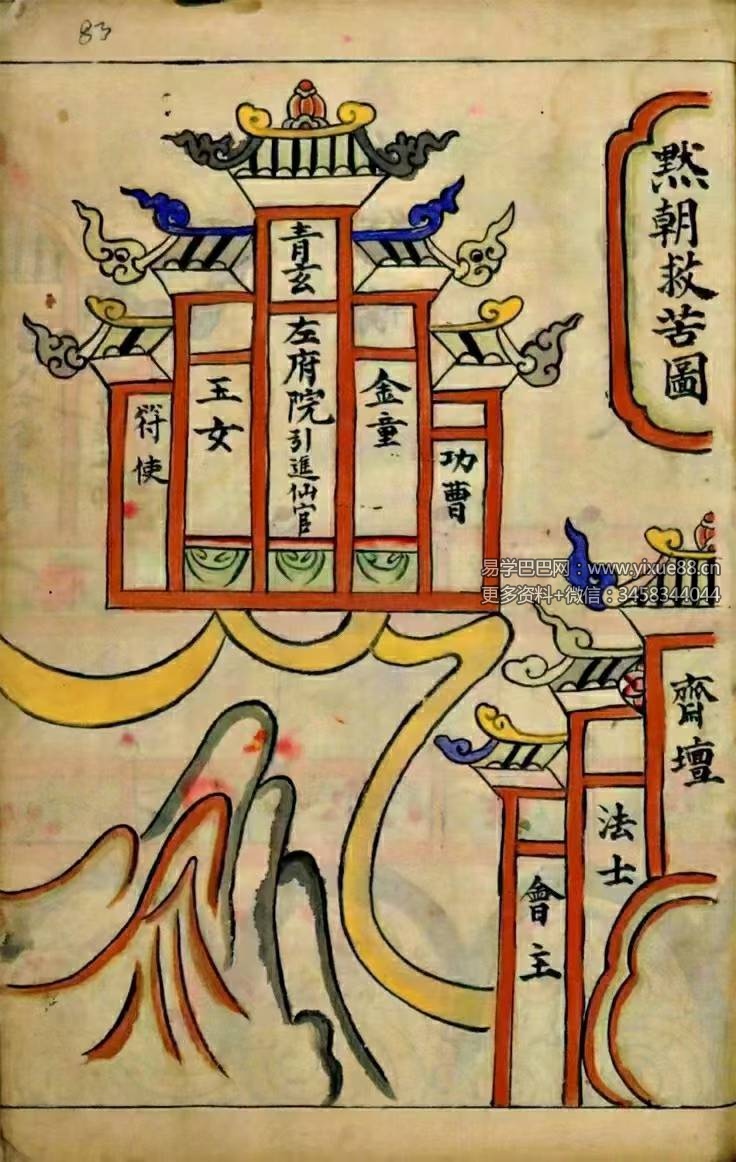 83
黙朝救苦圖
青玄
左府院引進仙官
金童
玉女
功曹
符使
易学巴巴网：www.yixue88.cn
更多资料+微信：3458344044
齋壇
法士
會主